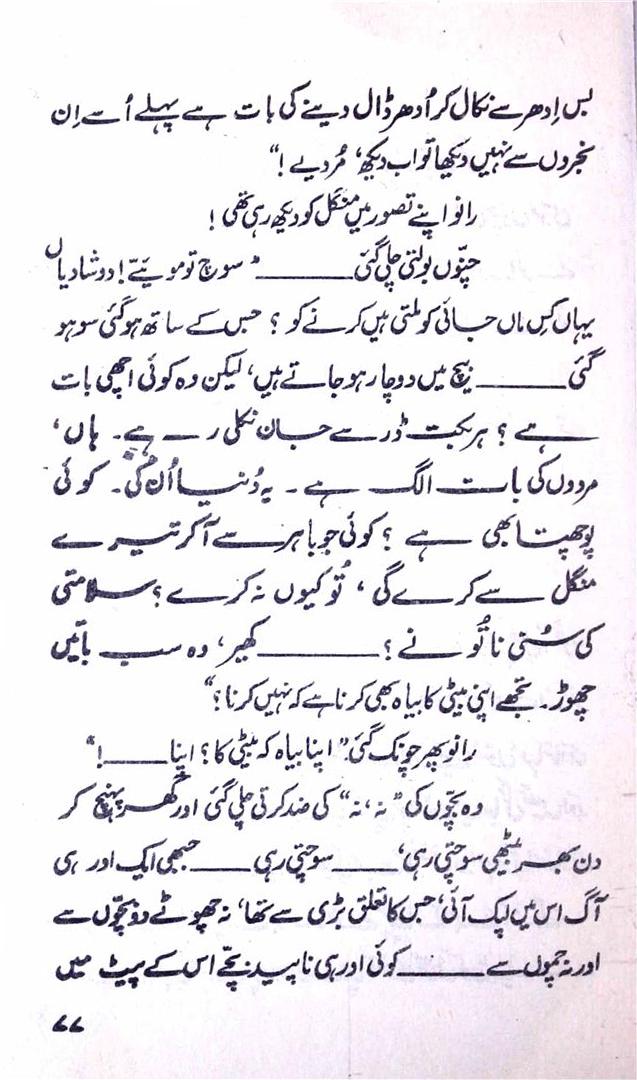 بس اِدھر سے نکال کر اُدھر ڈال دینے کی بات ہے پہلے اُسے اِن
نجروں سے نہیں دیکھا تو اب دیکھ، مُردیے !"
رانو اپنے تصور میں منگل کو دیکھ رہی تھی !
چنّوں بولتی چلی گئی ــــــــ "سوچ تو موئیے! دو شادیاں
یہاں کِس ماں جائی کو ملتی ہیں کرنے کو ؟ جس کے ساتھ ہو گئی سو ہو
گئی ــــــــ بیچ میں دو چار ہو جاتے ہیں، لیکن وہ کوئی اچھی بات
ہے ؟ ہر بکت ڈر سے جان نکلی رہے ہے۔ ہاں،
مردوں کی بات الگ ہے ۔ یہ دُنیا اُن کی۔ کوئی
پوچھتا بھی ہے ؟ کوئی جو باہر سے آ کر تیرے
منگل سے کرے گی ، تُو کیوں نہ کرے ؟ سلامتی
کی سُنی نا تُو نے ؟ ــــــــ کھیر، وہ سب باتیں
چھوڑ۔ تجھے اپنی بیٹی کا بیاہ بھی کرنا ہے کہ نہیں کرنا ؟"
رانو پھر چونک گئی۔ "اپنا بیاہ کہ بیٹی کا ؟ اپنا ــــــــ !"
وہ بچّوں کی "نہ، نہ" کی ضد کرتی چلی گئی اور گھر پہنچ کر
دن بھر بیٹھی سوچتی رہی، ــــــــ سوچتی رہی ــــــــ جبھی ایک اور ہی
آگ اس میں لپک آئی، جس کا تعلق بڑی سے تھا، نہ چھوٹے دو بچّوں سے
اور نہ جموں سے ــــــــ کوئی اور ہی ناپید بچّے اس کے پیٹ میں
۷۷